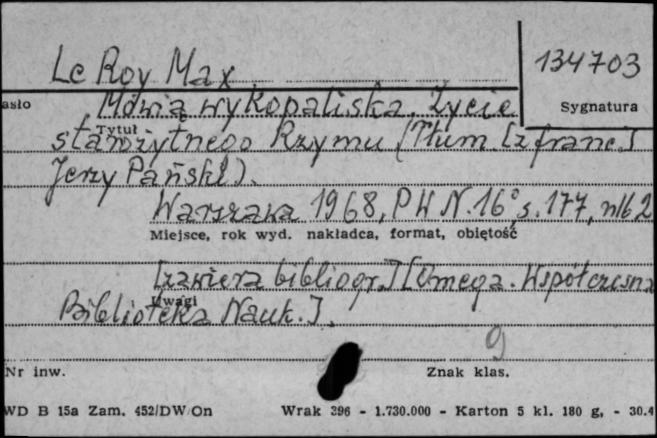 Le Roy Max
134703
asło
Sygnatura
Mówią wykopaliska. Życie
Tytuł
starożytnego Rzymu (Tłum. [z franc.]
Jerzy Pański).
Warszawa 1968, PWN. 16°, s. 177, nlb 2
Miejsce, rok wyd. nakładca, format, objętość
[zawiera bibliogr.] [Omega. Współczesna
Uwagi
Biblioteka Nauk.].
9
Nr inw.
Znak klas.
WD B 15a Zam. 452/DW/On Wrak 396 - 1.730.000 - Karton 5 kl. 180 g. - 30.4